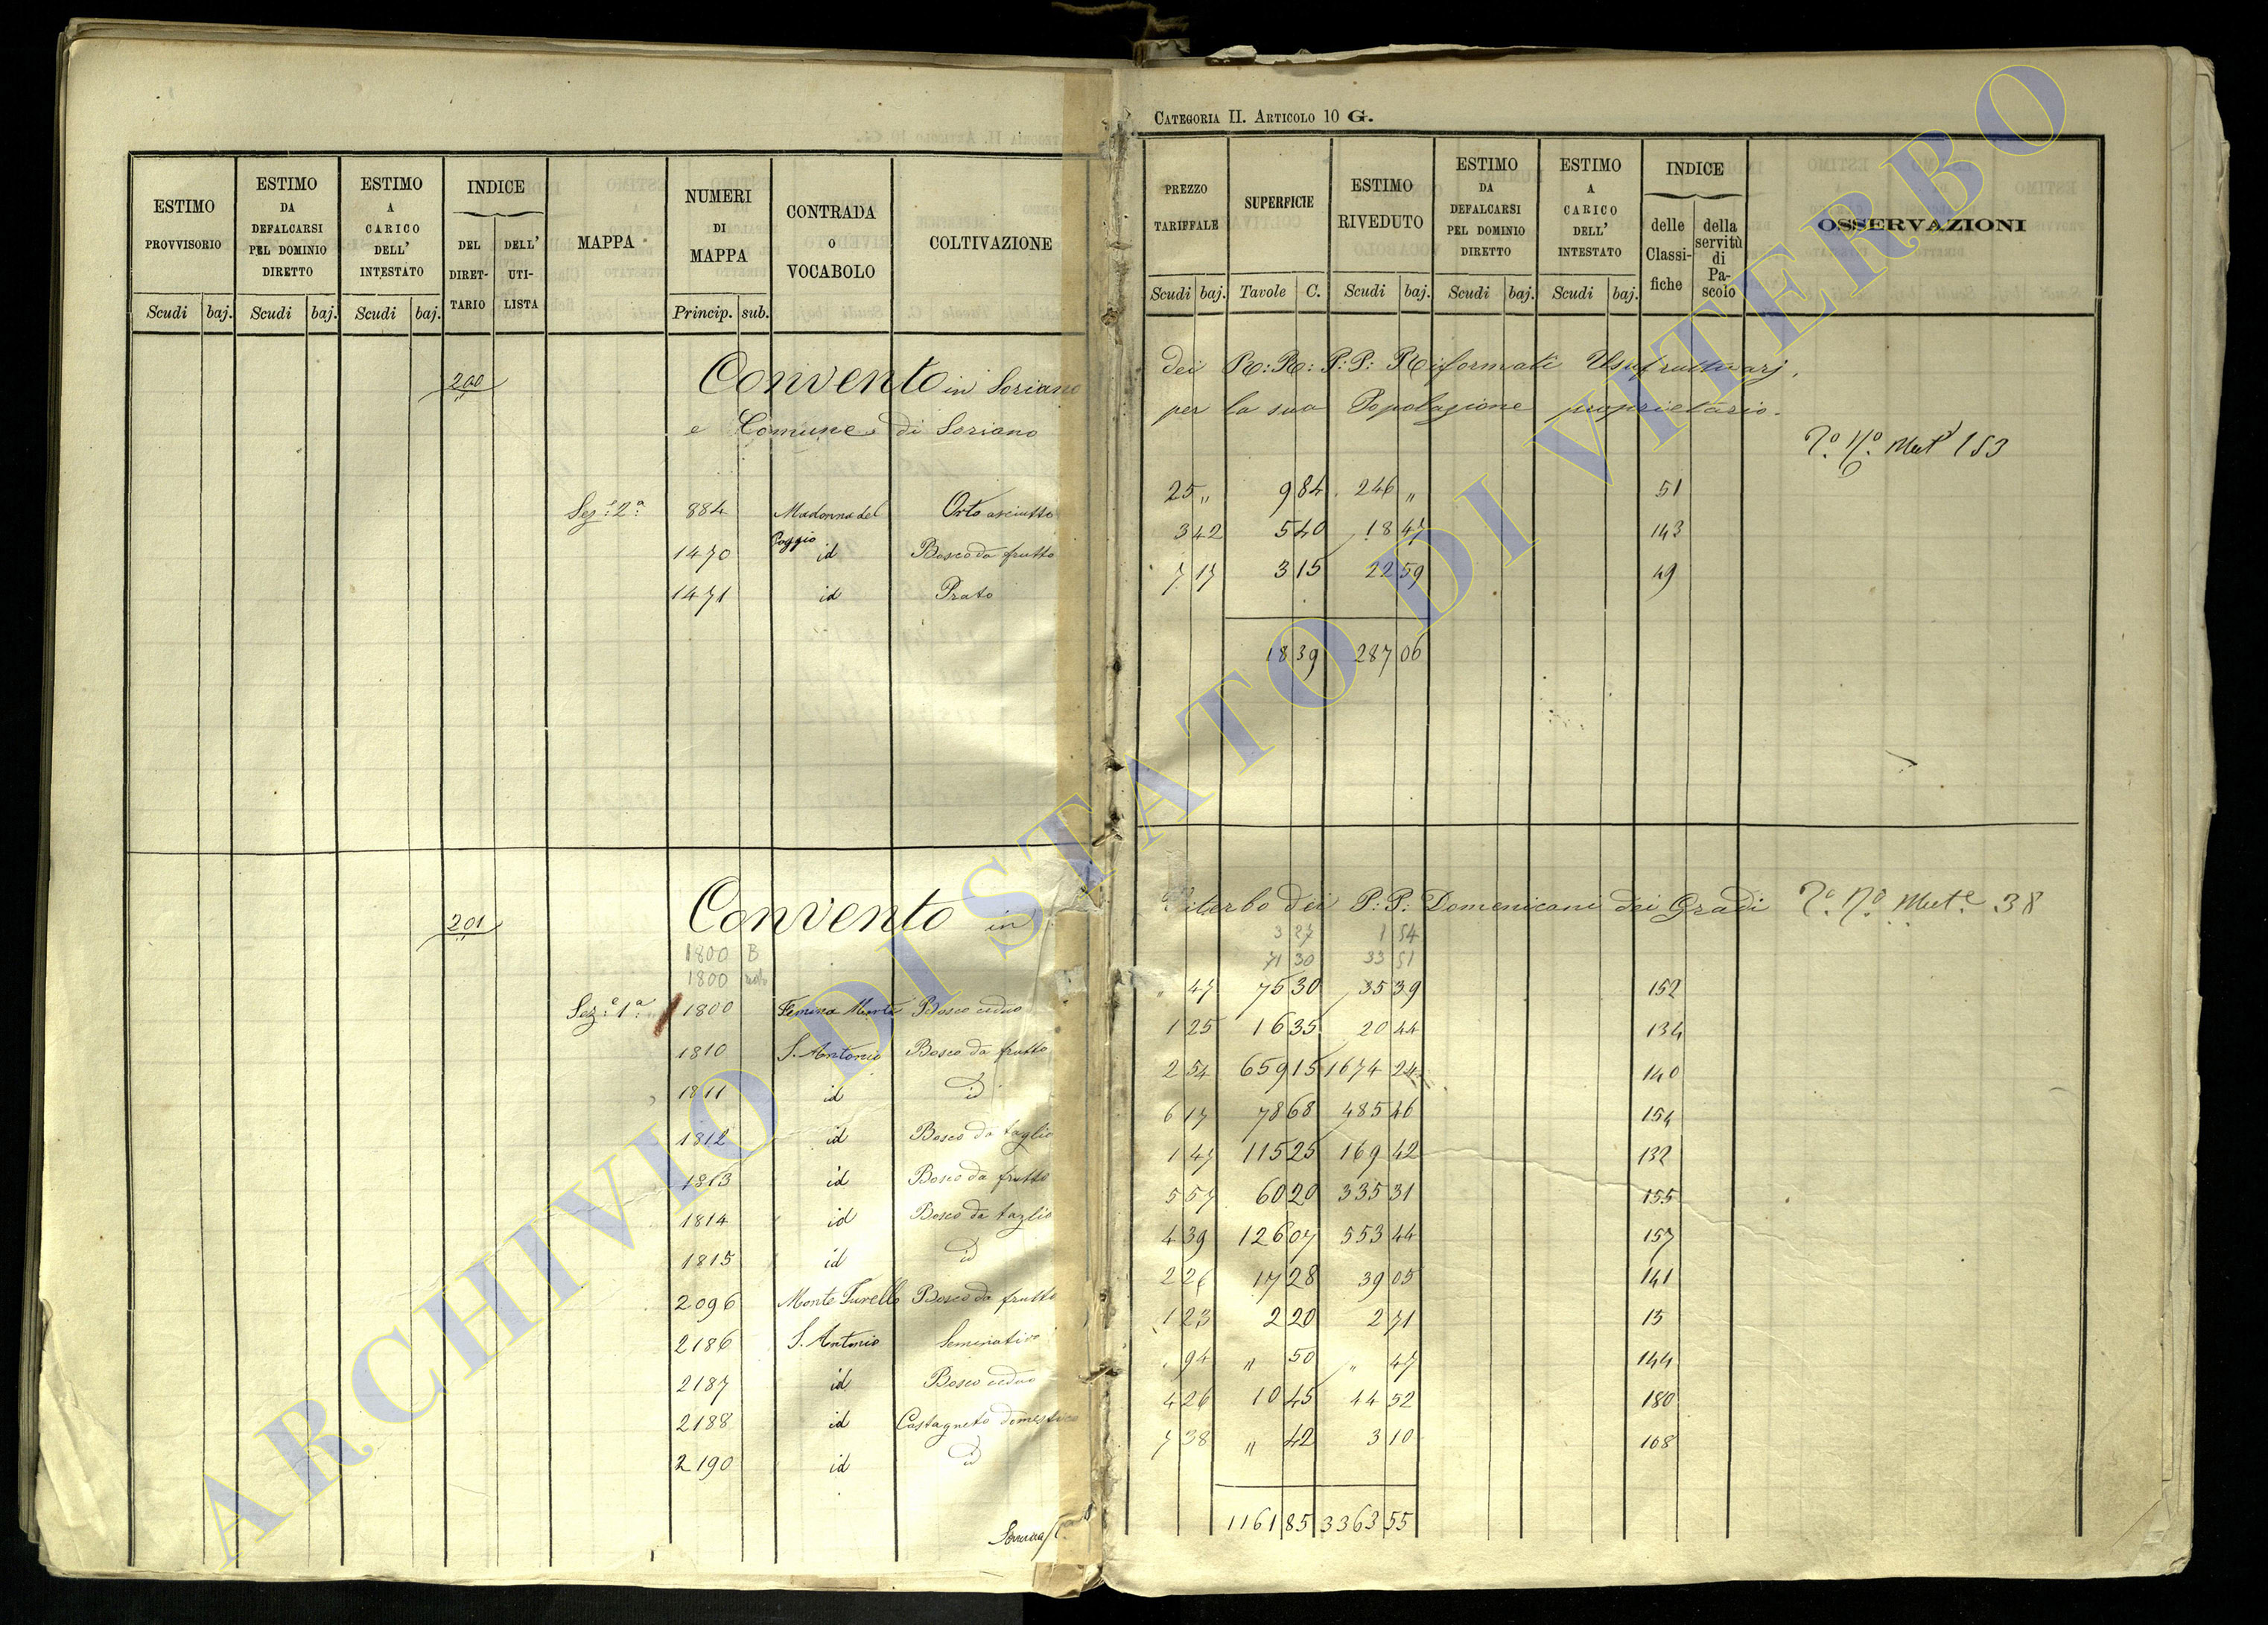 CATEGORIA II. ARTICOLO 10 G.
ESTIMO PROVVISORIO | ESTIMO DA DEFALCARSI PEL DOMINIO DIRETTO | ESTIMO A CARICO DELL' INTESTATO | INDICE DEL DIRET-TARIO | DELL' UTI-LISTA | MAPPA | NUMERI DI MAPPA | CONTRADA O VOCABOLO | COLTIVAZIONE | PREZZO TARIFFALE | SUPERFICIE | ESTIMO RIVEDUTO | ESTIMO DA DEFALCARSI PEL DOMINIO DIRETTO | ESTIMO A CARICO DELL' INTESTATO | INDICE delle Classi-fiche | della servitù di Pa-scolo | OSSERVAZIONI
Scudi | baj. | Scudi | baj. | Scudi | baj. | Princip. | sub. | Scudi | baj. | Tavole | C. | Scudi | baj. | Scudi | baj. | Scudi | baj.
200 Convento in Soriano dei R: R: P: P: Riformati Usufruttuarj,
e Comune di Soriano per la sua Popolazione proprietario.
153
Sez:e 2a 884 Madonna del Poggio Orto asciutto 25 " 9 84 246 " 51
1470 id Bosco da frutto 3 42 5 40 18 47 143
1471 id Prato 7 17 3 15 22 59 49
18 39 287 06
201 Convento in Viterbo dei P: P: Domenicani dei Gradi 38
1800 B 3 27 1 54
1800 71 30 33 51
Sez:e 1a 1800 Femina Morta Bosco ceduo " 47 75 30 35 39 152
1810 S. Antonio Bosco da frutto 1 25 16 35 20 44 134
1811 id id 2 54 659 15 1674 24 140
1812 id Bosco da taglio 6 17 78 68 485 46 154
1813 id Bosco da frutto 1 47 115 25 169 42 132
1814 id Bosco da taglio 5 57 60 20 335 31 155
1815 id id 4 39 126 07 553 44 157
2096 Monte Turello Bosco da frutto 2 26 17 28 39 05 141
2186 S. Antonio Seminativo 1 23 2 20 2 71 15
2187 id Bosco ceduo " 94 " 50 " 47 144
2188 id Castagneto domestico 4 26 10 45 44 52 180
2190 id id 7 38 " 42 3 10 168
1161 85 3363 55
ARCHIVIO DI STATO DI VITERBO